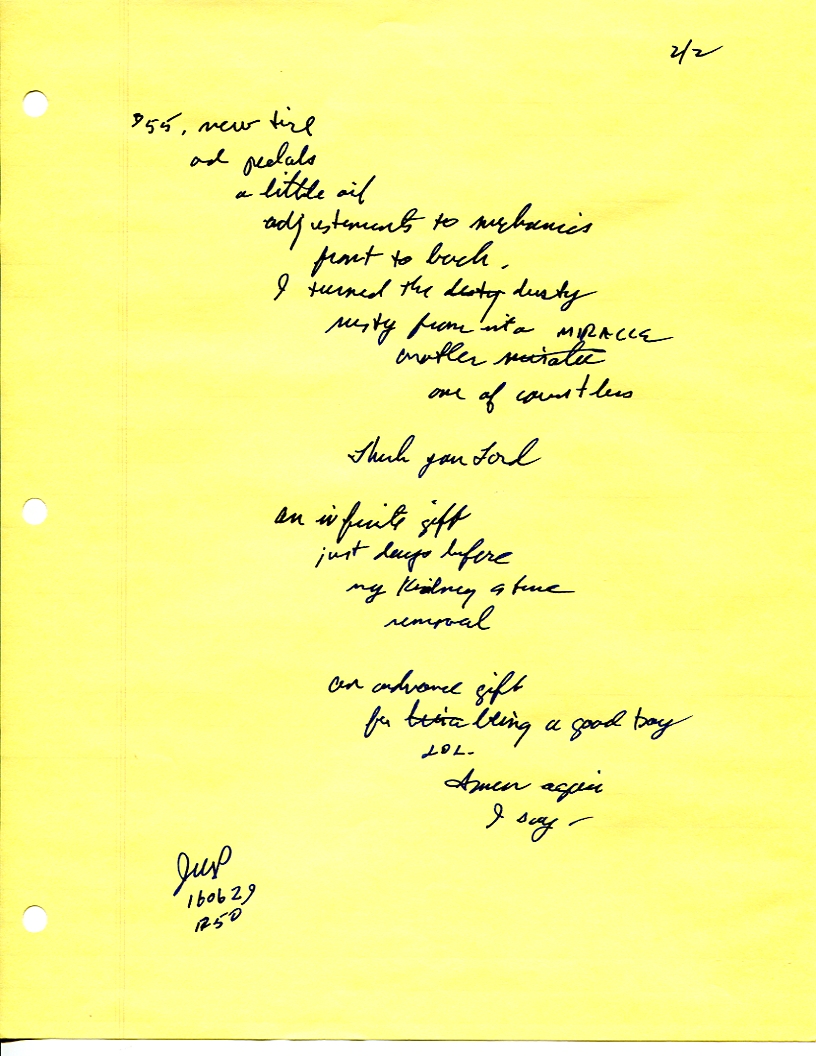 2/2
$55, new tire
ad pedals
a little oil
adjustements to mechanics
front to back.
I turned the dusty dusty
rusty from into MIRACLE
another miracle
one of countless
Thank you Lord
an infinite gift
just days before
my Kidney stone
removal
an advance gift
for being a good boy
LOL.
Amen again
I say -
160629
1250